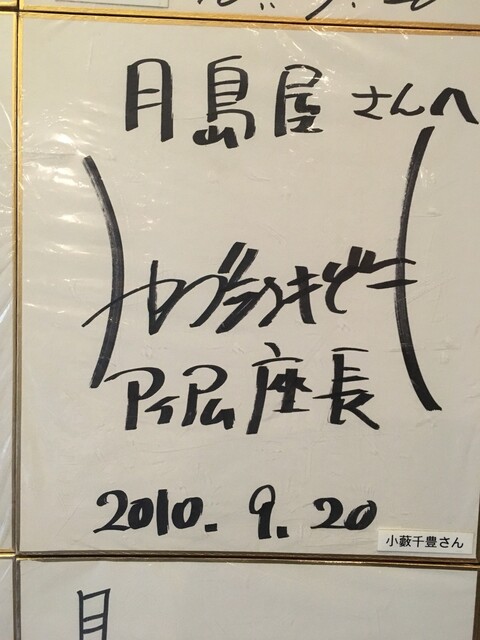 月島屋さんへ
アイアム座長
2010.9.20
小藪千豊さん
月